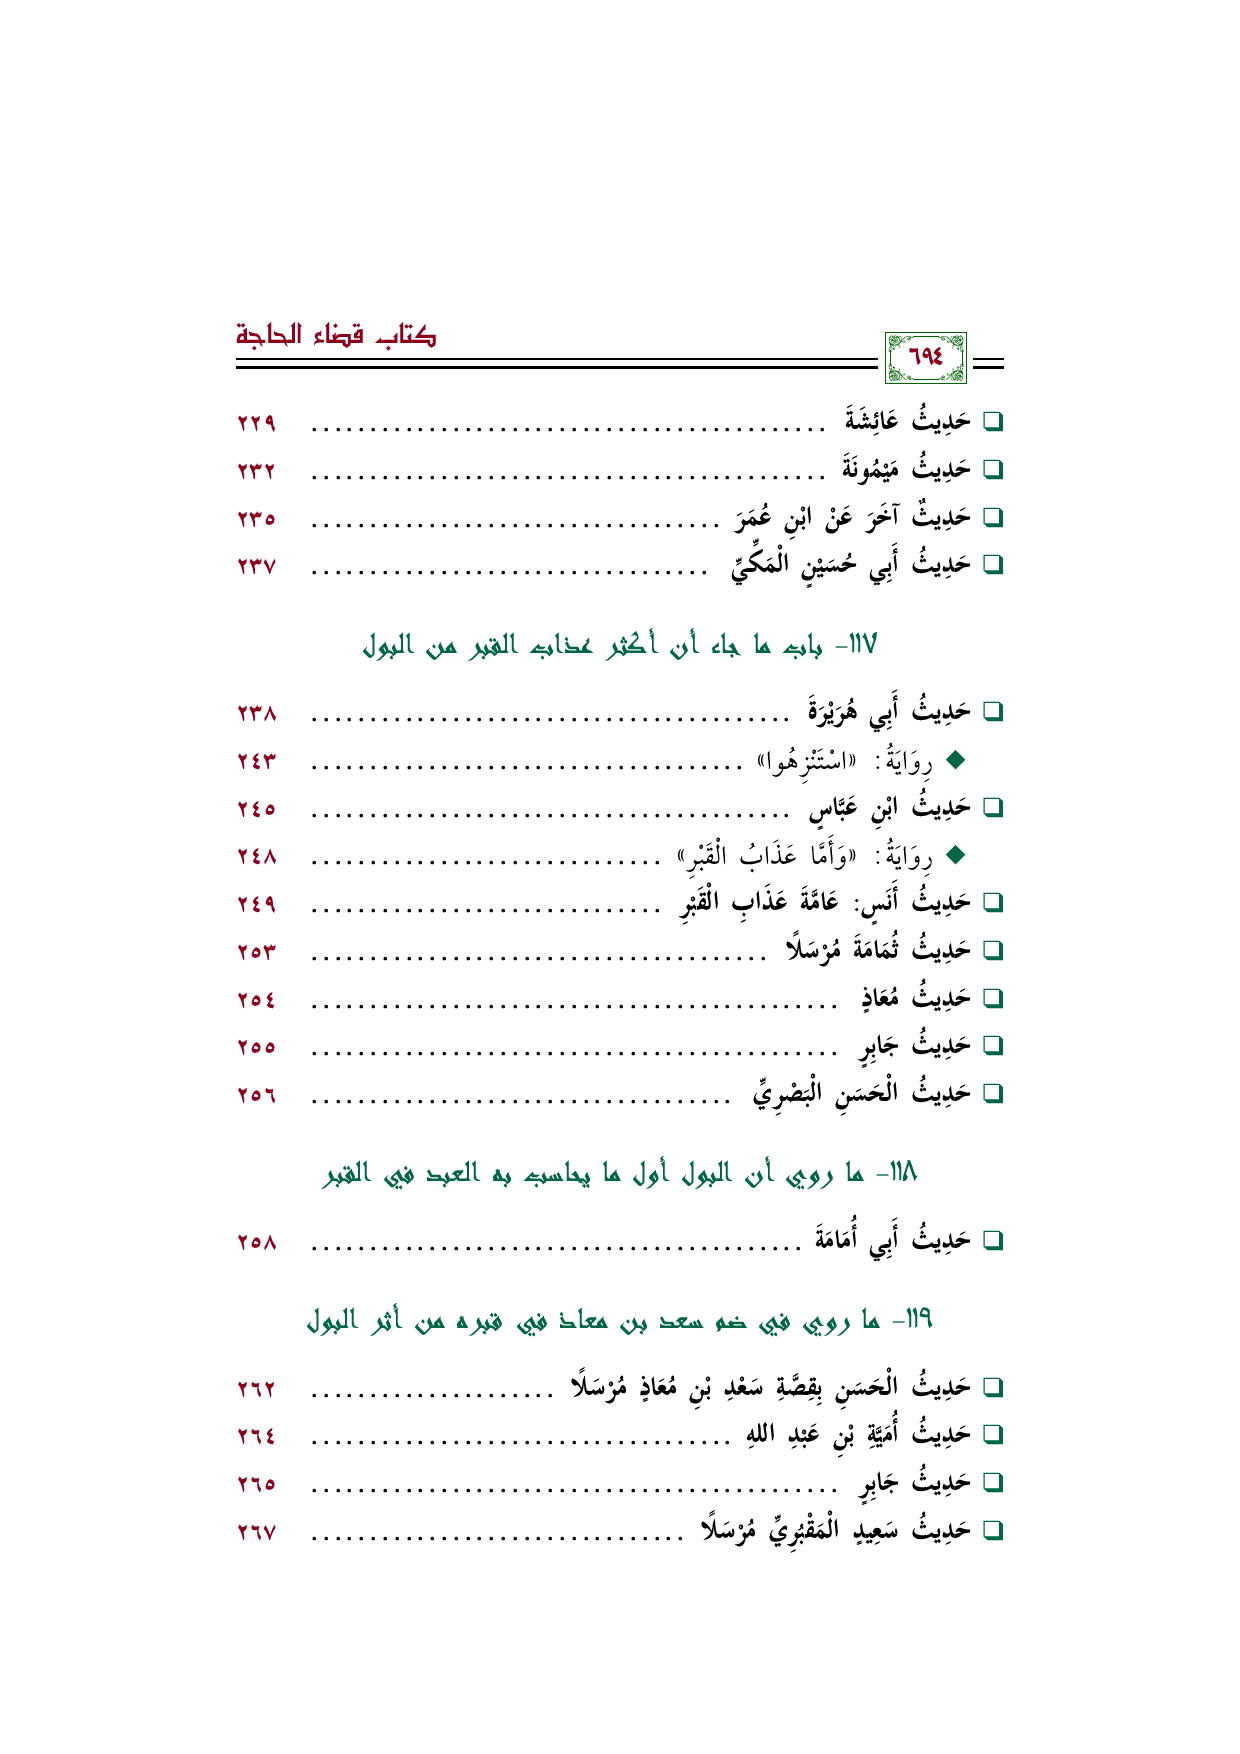 كتاب قضاء الحاجة
٦٩٤
❑ حَدِيثُ عَائِشَةَ ............................................ ٢٢٩
❑ حَدِيثُ مَيْمُونَةَ ............................................ ٢٣٢
❑ حَدِيثٌ آخَرَ عَنْ ابْنِ عُمَرَ ................................... ٢٣٥
❑ حَدِيثُ أَبِي حُسَيْنٍ الْمَكِّيِّ .................................. ٢٣٧
١١٧- باب ما جاء أن أكثر عذاب القبر من البول
❑ حَدِيثُ أَبِي هُرَيْرَةَ ......................................... ٢٣٨
◆ رِوَايَةُ: «اسْتَنْزِهُوا» ..................................... ٢٤٣
❑ حَدِيثُ ابْنِ عَبَّاسٍ ......................................... ٢٤٥
◆ رِوَايَةُ: «وَأَمَّا عَذَابُ الْقَبْرِ» .............................. ٢٤٨
❑ حَدِيثُ أَنَسٍ: عَامَّةَ عَذَابِ الْقَبْرِ .............................. ٢٤٩
❑ حَدِيثُ ثُمَامَةَ مُرْسَلًا ....................................... ٢٥٣
❑ حَدِيثُ مُعَاذٍ ............................................. ٢٥٤
❑ حَدِيثُ جَابِرٍ ............................................. ٢٥٥
❑ حَدِيثُ الْحَسَنِ الْبَصْرِيِّ .................................... ٢٥٦
١١٨- ما روي أن البول أول ما يحاسب به العبد في القبر
❑ حَدِيثُ أَبِي أُمَامَةَ .......................................... ٢٥٨
١١٩- ما روي في ضم سعد بن معاذ في قبره من أثر البول
❑ حَدِيثُ الْحَسَنِ بِقِصَّةِ سَعْدِ بْنِ مُعَاذٍ مُرْسَلًا ..................... ٢٦٢
❑ حَدِيثُ أُمَيَّةِ بْنِ عَبْدِ اللهِ .................................... ٢٦٤
❑ حَدِيثُ جَابِرٍ ............................................. ٢٦٥
❑ حَدِيثُ سَعِيدٍ الْمَقْبُرِيِّ مُرْسَلًا ................................ ٢٦٧